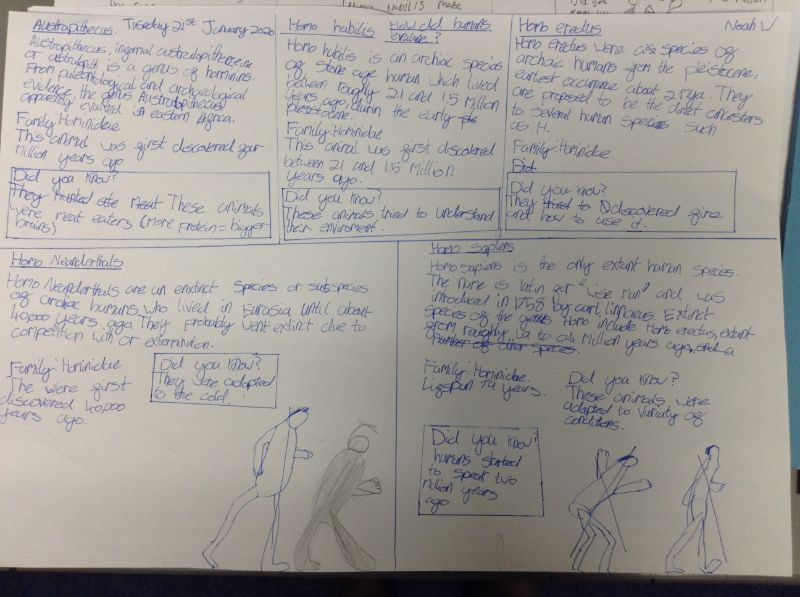 Austrapithecus. Tuesday 21st January 2020
Austrapithecus, ingomal australopithecine
or astralopith is a genus of hominins.
From paleontological and archaeological
evidence, the genus Austrolopithecus
apparently evolved in eastern Africa.
Family: Hominidae
This animal was first discovered four
Million years ago
Did you know?
They hunted Meat These animals
were meat eaters (more protein = bigger
brains)
Homo habilis How did humans
evolve?
Homo habilis is an archiac species
of stone age human which lived
between roughly 2.1 and 1.5 million
years ago, durin the early
pleistocene.
Family: Hominidae
This animal was first discovered
between 2.1 and 1.5 Million
years ago.
Did you know?
These animals tried to understand
their enviroment.
Homo erectus Noah W
Homo erectus were a species of
archaic humans from the pleistocene,
earliest occurance about 2 mya. They
are proposed to be the direct ancestors
to several human species such
as H.
Family: Hominidae.
Did
Did you know?
They tried to Ddiscovered fire
and how to use it.
Homo Neanderthals
Homo Neanderthals are an enxtinct species or subspecies
of archaic humans who lived in Eurasia until about
40,000 years ago. They probably went extinct due to
competition with or extermination.
Family: Hominidae
The were first
discovered 40,000
years ago.
Did you know?
They were adapted
to the cold.
Homo sapiens
Homo sapiens is the only extant human species.
The name is latin for "wise man" and was
introduced in 1758 by carl linnaeus. Extinct
species of the genus Homo include Homo erectus, extant
from roughly 1.9 to 0.4 Million years ago, and a
number of other species.
Family: Hominidae.
Lifespan: 79 years.
Did you know?
These animals were
adapted to variaty of
conditions.
Did you know?
humans started
to speak two
million years
ago